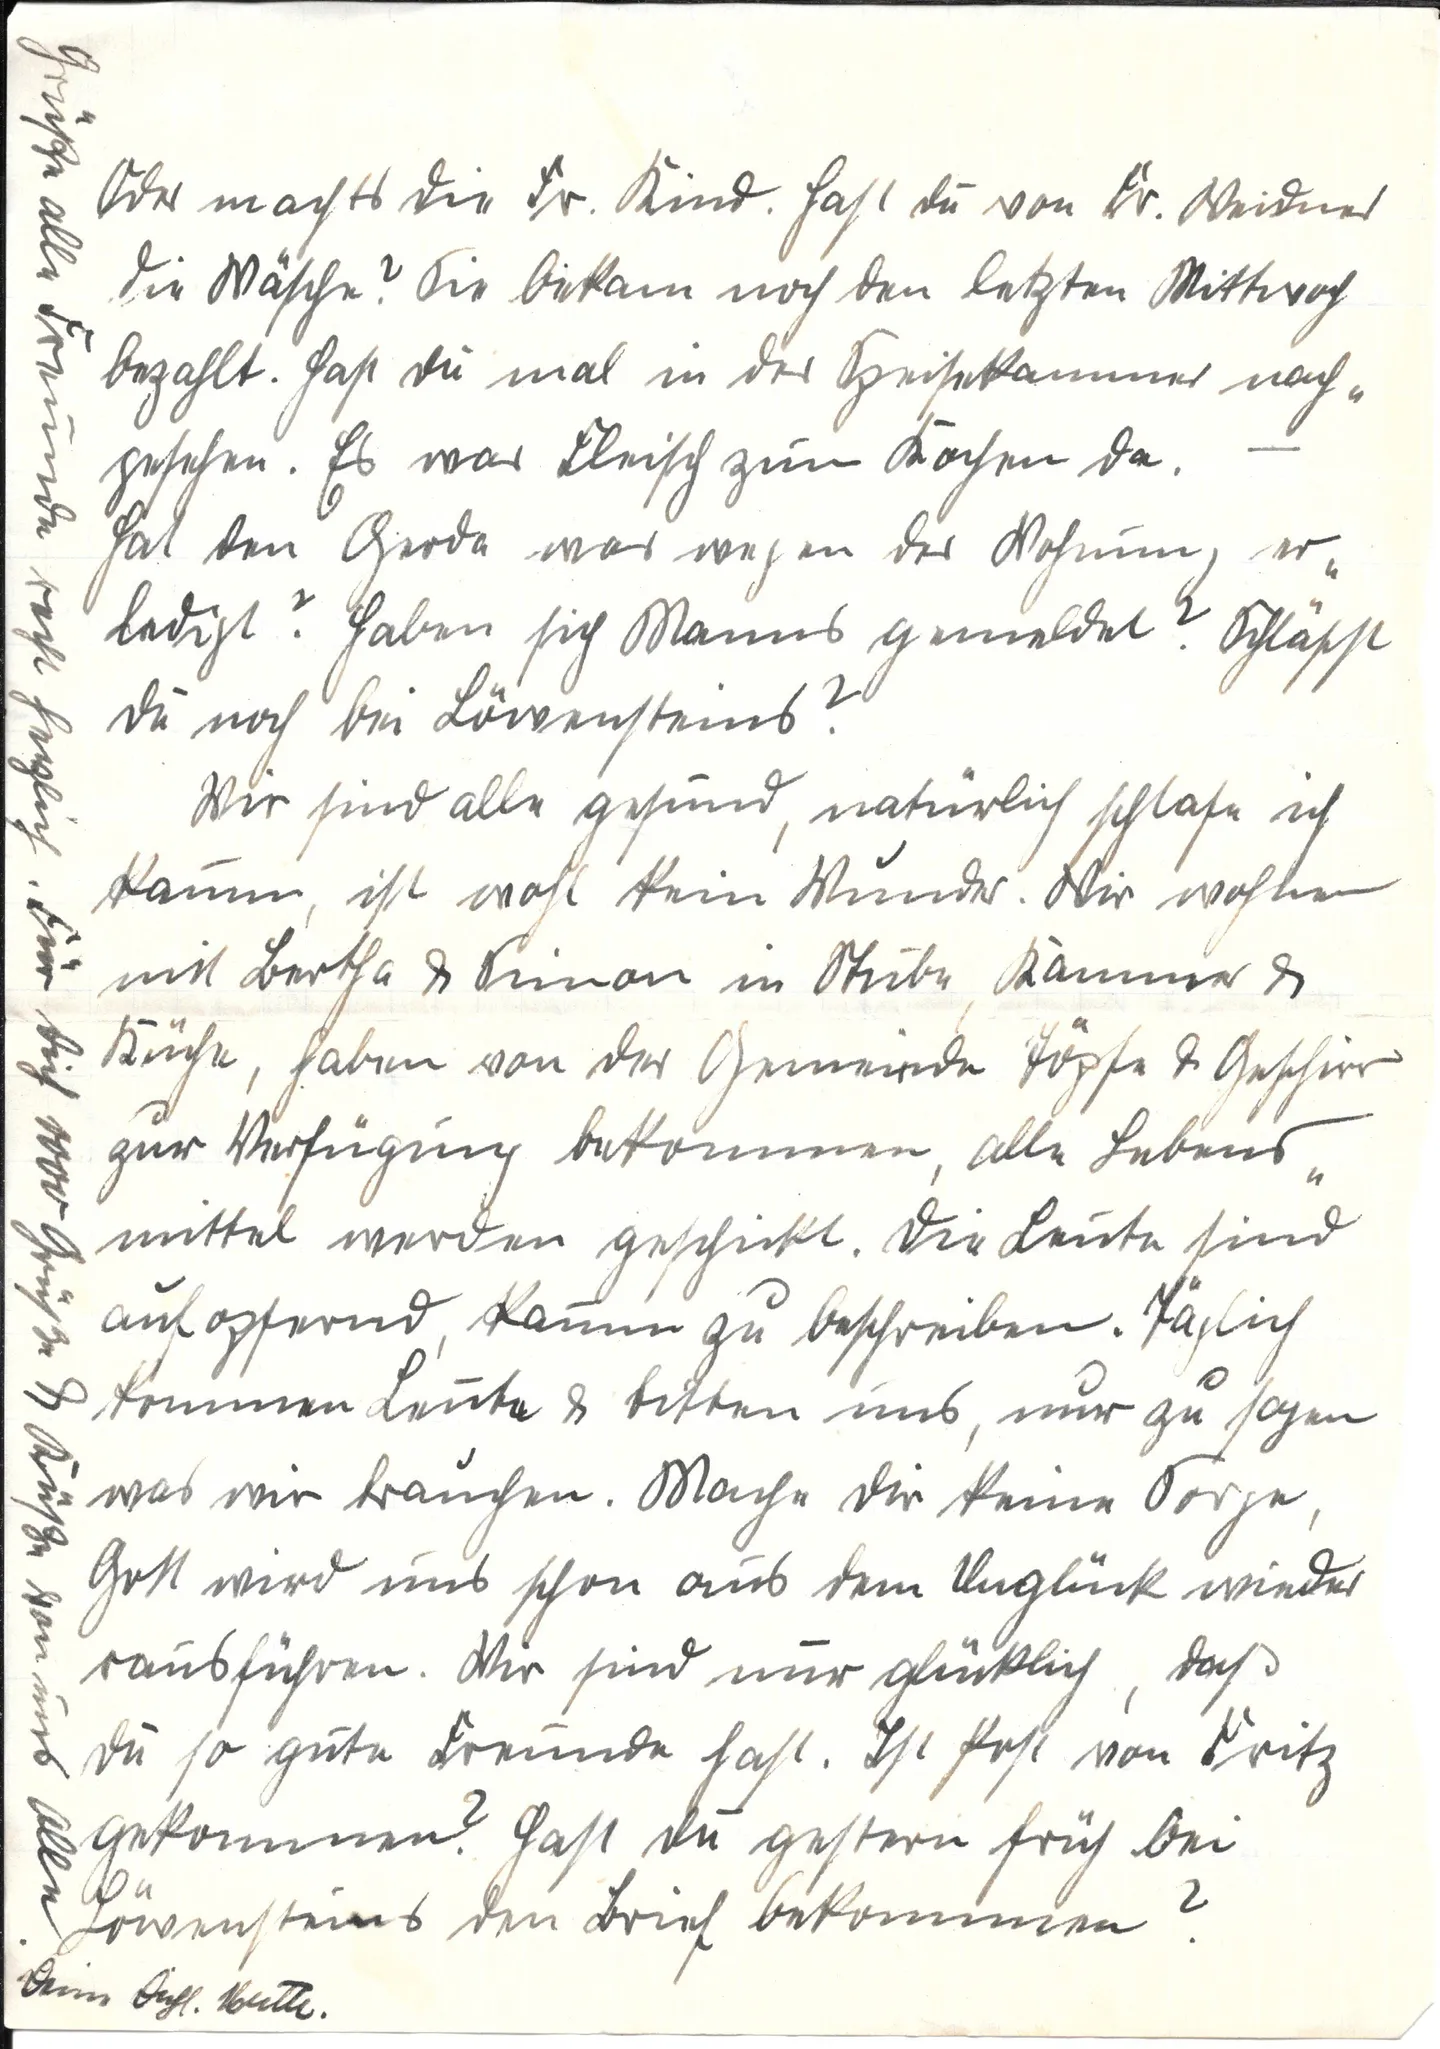 Oder machts die Fr. Kind. Hast du von Fr. Weidner
die Wäsche? Sie bekam noch den letzten Mittwoch
bezahlt. Hast du mal in der Speisekammer nach-
gesehen. Es war Fleisch zum Kochen da. —
Hat den Gerda was wegen der Wohnung er-
ledigt? Haben sich Manns gemeldet? Schläfst
du noch bei Löwensteins?
Wir sind alle gesund, natürlich schlafe ich
kaum, ist wohl kein Wunder. Wir wohnen
mit Bertha & Simon in Stube, Kammer &
Küche, haben von der Gemeinde Töpfe & Geschirr
zur Verfügung bekommen, alle Lebens-
mittel werden geschickt. Die Leute sind
aufopfernd, kaum zu beschreiben. Täglich
kommen Leute & bitten uns, nur zu sagen
was wir brauchen. Mache dir keine Sorge,
Gott wird uns schon aus dem Unglück wieder
rausführen. Wir sind nur glücklich, daß
du so gute Freunde hast. Ist Post von Fritz
gekommen? Hast du gestern früh bei
Löwensteins den Brief bekommen?
Grüße alle Freunde recht herzlich. Für dich 1000 Grüße & Küsse von uns allen.
Deine Mutti.